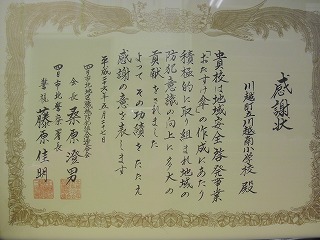 感謝状
川越町立川越南小学校 殿
貴校は地域安全啓発事業
「おたすけ傘」の作成にあたり
積極的に取り組まれ地域の
防犯意識の向上に多大の
貢献をされました
よってその功績をたたえ
感謝の意を表します
平成二十六年五月二十七日
会長 桑原澄男
四日市北警察署長
警視 藤原佳明